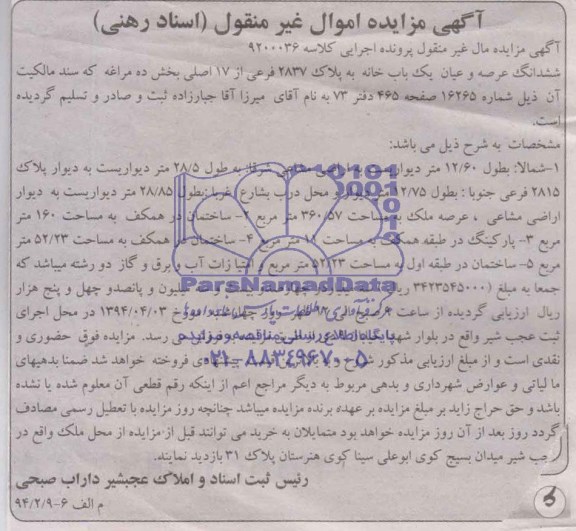 آگهی مزایده اموال غیر منقول (اسناد رهنی)
آگهی مزایده مال غیر منقول پرونده اجرایی کلاسه ۹۲۰۰۰۳۶
ششدانگ عرصه و عیان یک باب خانه به پلاک ۲۸۳۷ فرعی از ۱۷ اصلی بخش ده مراغه که سند مالکیت
آن ذیل شماره ۱۶۲۶۵ صفحه ۴۶۵ دفتر ۷۳ به نام آقای میرزا آقا جبارزاده ثبت و صادر و تسلیم گردیده
است.
مشخصات به شرح ذیل می باشد:
۱-شمالا: بطول ۱۲/۶۰ متر دیواریست به اراضی مشاعی شرقا: به طول ۲۸/۵ متر دیواریست به دیوار پلاک
۲۸۱۵ فرعی جنوبا : بطول ۱۲/۷۵ متر دیوار و محل درب بشارع غربا :بطول ۲۸/۸۵ متر دیواریست به دیوار
اراضی مشاعی ، عرصه ملک به مساحت ۳۶۰/۵۷ متر مربع ۲- ساختمان در همکف به مساحت ۱۶۰ متر
مربع ۳- پارکینگ در طبقه همکف به مساحت متر مربع ۴- ساختمان در همکف به مساحت ۵۲/۲۳ متر
مربع ۵- ساختمان در طبقه اول به مساحت ۵۲/۲۳ متر مربع و امتیازات آب و برق و گاز دو رشته میباشد که
جمعا به مبلغ (۳۴۲۳۵۴۵۰۰۰ ریال) میلیون و پانصدو چهل و پنج هزار
ریال ارزیابی گردیده از ساعت ۹ صبح الی ۱۲ ظهر روز چهارشنبه مورخ ۱۳۹۴/۰۴/۰۳ در محل اجرای
ثبت عجب شیر واقع در بلوار شهید می رسد. مزایده فوق حضوری و
نقدی است و از مبلغ ارزیابی مذکور شروع و به فروخته خواهد شد ضمنا بدهیهای
ما لیاتی و عوارض شهرداری و بدهی مربوط به دیگر مراجع اعم از اینکه رقم قطعی آن معلوم شده یا نشده
باشد و حق حراج زاید بر مبلغ مزایده بر عهده برنده مزایده میباشد چنانچه روز مزایده با تعطیل رسمی مصادف
گردد روز بعد از آن روز مزایده خواهد بود متمایلان به خرید می توانند قبل از مزایده از محل ملک واقع در
عجب شیر میدان بسیج کوی ابوعلی سینا کوی هنرستان پلاک ۳۱ بازدید نمایند.
رئیس ثبت اسناد و املاک عجبشیر داراب صبحی
م الف ۶-۹۴/۲/۹
ParsNamadData
پایگاه اطلاع رسانی مناقصه و مزایده
۰۲۱-۸۸۳۴۹۶۷۰-۵